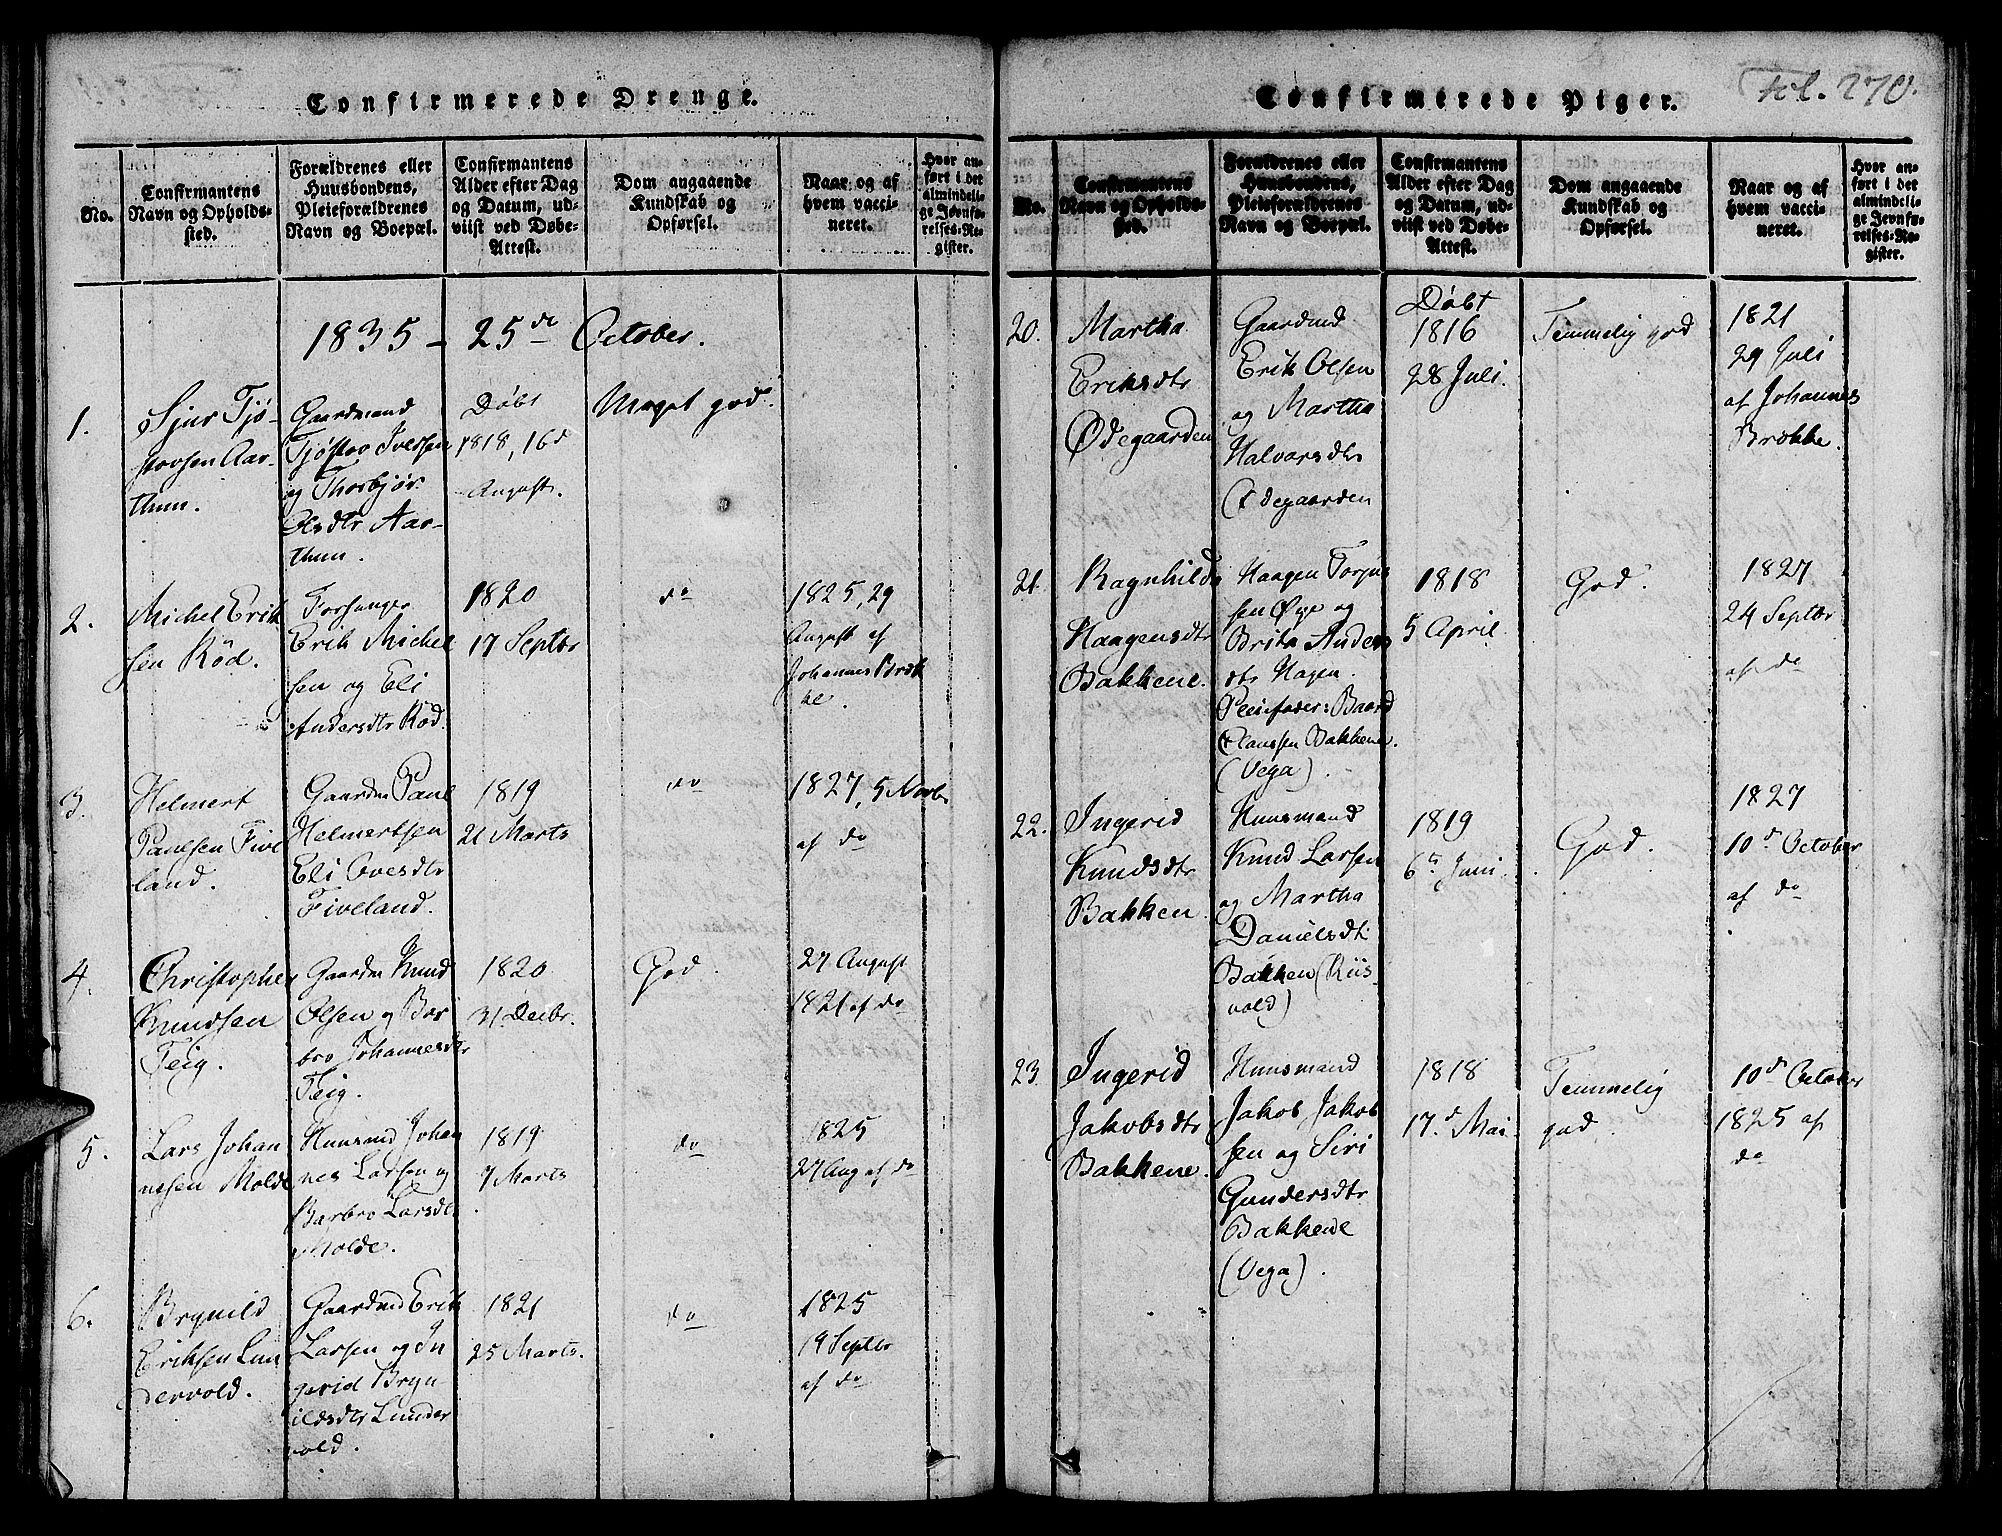 Confirmerede Drenge.
No.
Confirmantens
Navn og Opholds-
sted.
Forældrenes eller
Huusbondens,
Pleieforældrenes
Navn og Boepæl.
Confirmantens
Alder efter Dag
og Datum, ud-
viist ved Døbe-
Attest.
Dom angaaende
Kundskab og
Opførsel.
Naar og af
hvem vacci-
neret.
Hvor an-
ført i det
almindeli-
ge Jevnfø-
relses-Re-
gister.
1835 - 25de October.
1.
Sjur Tjø-
stovsen Aar-
thun.
Gaardmand
Tjøstov Iversen
og Thorbjør
Olsdtr Aar-
thun.
Døbt
1818, 16d
August.
Meget god.
2.
Michel Erik
sen Röd.
Forsanger
Erik Michel
sen og Eli
Andersdtr Röd.
1820
17 Septbr
do
1825, 29
August af
Johannes Bræk
ke.
3.
Helmert
Paulsen Five
land.
Gaardm Paul
Helmertsen
Eli Ovesdtr
Fiveland.
1819
21 Marts
do
1827, 5 Novbr
af do
4.
Christopher
Knudsen
Teig.
Gaardm Knud
Olsen og Bar
bro Johannesdtr
Teig.
1820
31 Decbr.
God.
27 August
1821 af do
5.
Lars Johan
nesen Molde
Huusmd Johan
nes Larsen og
Barbro Larsdtr
Molde.
1819
7 Marts
do
1825
27 Aug af do
6.
Brynild
Eriksen Lun
dervold.
Gaardmd Erik
Larsen og In
gerid Bryn
ildsdtr Lunder
vold.
1821
25 Marts.
do
1825
19 Septbr
af do
Confirmerede Piger.
Fol. 270.
No.
Confirmantens
Navn og Opholds-
sted.
Forældrenes eller
Huusbondens,
Pleieforældrenes
Navn og Boepæl.
Confirmantens
Alder efter Dag
og Datum, ud-
viist ved Døbe-
Attest.
Dom angaaende
Kundskab og
Opførsel.
Naar og af
hvem vacci-
neret.
Hvor an-
ført i det
almindeli-
ge Jevnfø-
relses-Re-
gister.
20.
Martha
Eriksdtr
Ødegaarden
Gaardmd
Erik Olsen
og Martha
Halvorsdtr
Ødegaarden
Døbt
1816
28 Juli.
Temmelig god
1821
29 Juli
af Johannes
Brække.
21.
Ragnhild
Haagensdtr
Bakkene.
Haagen Torjus
sen Øye og
Brita Anders
dtr Hagen.
Pleiefader: Baard
Clausen Bakkene.
(Vega).
1818
5 April.
God.
1827
24 Septbr
af do
22.
Ingerid
Knudsdtr
Bakken
Huusmand
Knud Larsen
og Martha
Danielsdtr
Bakken (Riis-
vold)
1819
6te Juni.
God.
1827
10d October
af do
23.
Ingerid
Jakobsdtr
Bakkene.
Huusmand
Jakob Jakob
sen og Siri
Gundersdtr
Bakkene
(Vega).
1818
17d Mai.
Temmelig
god.
10d October
1825 af
do